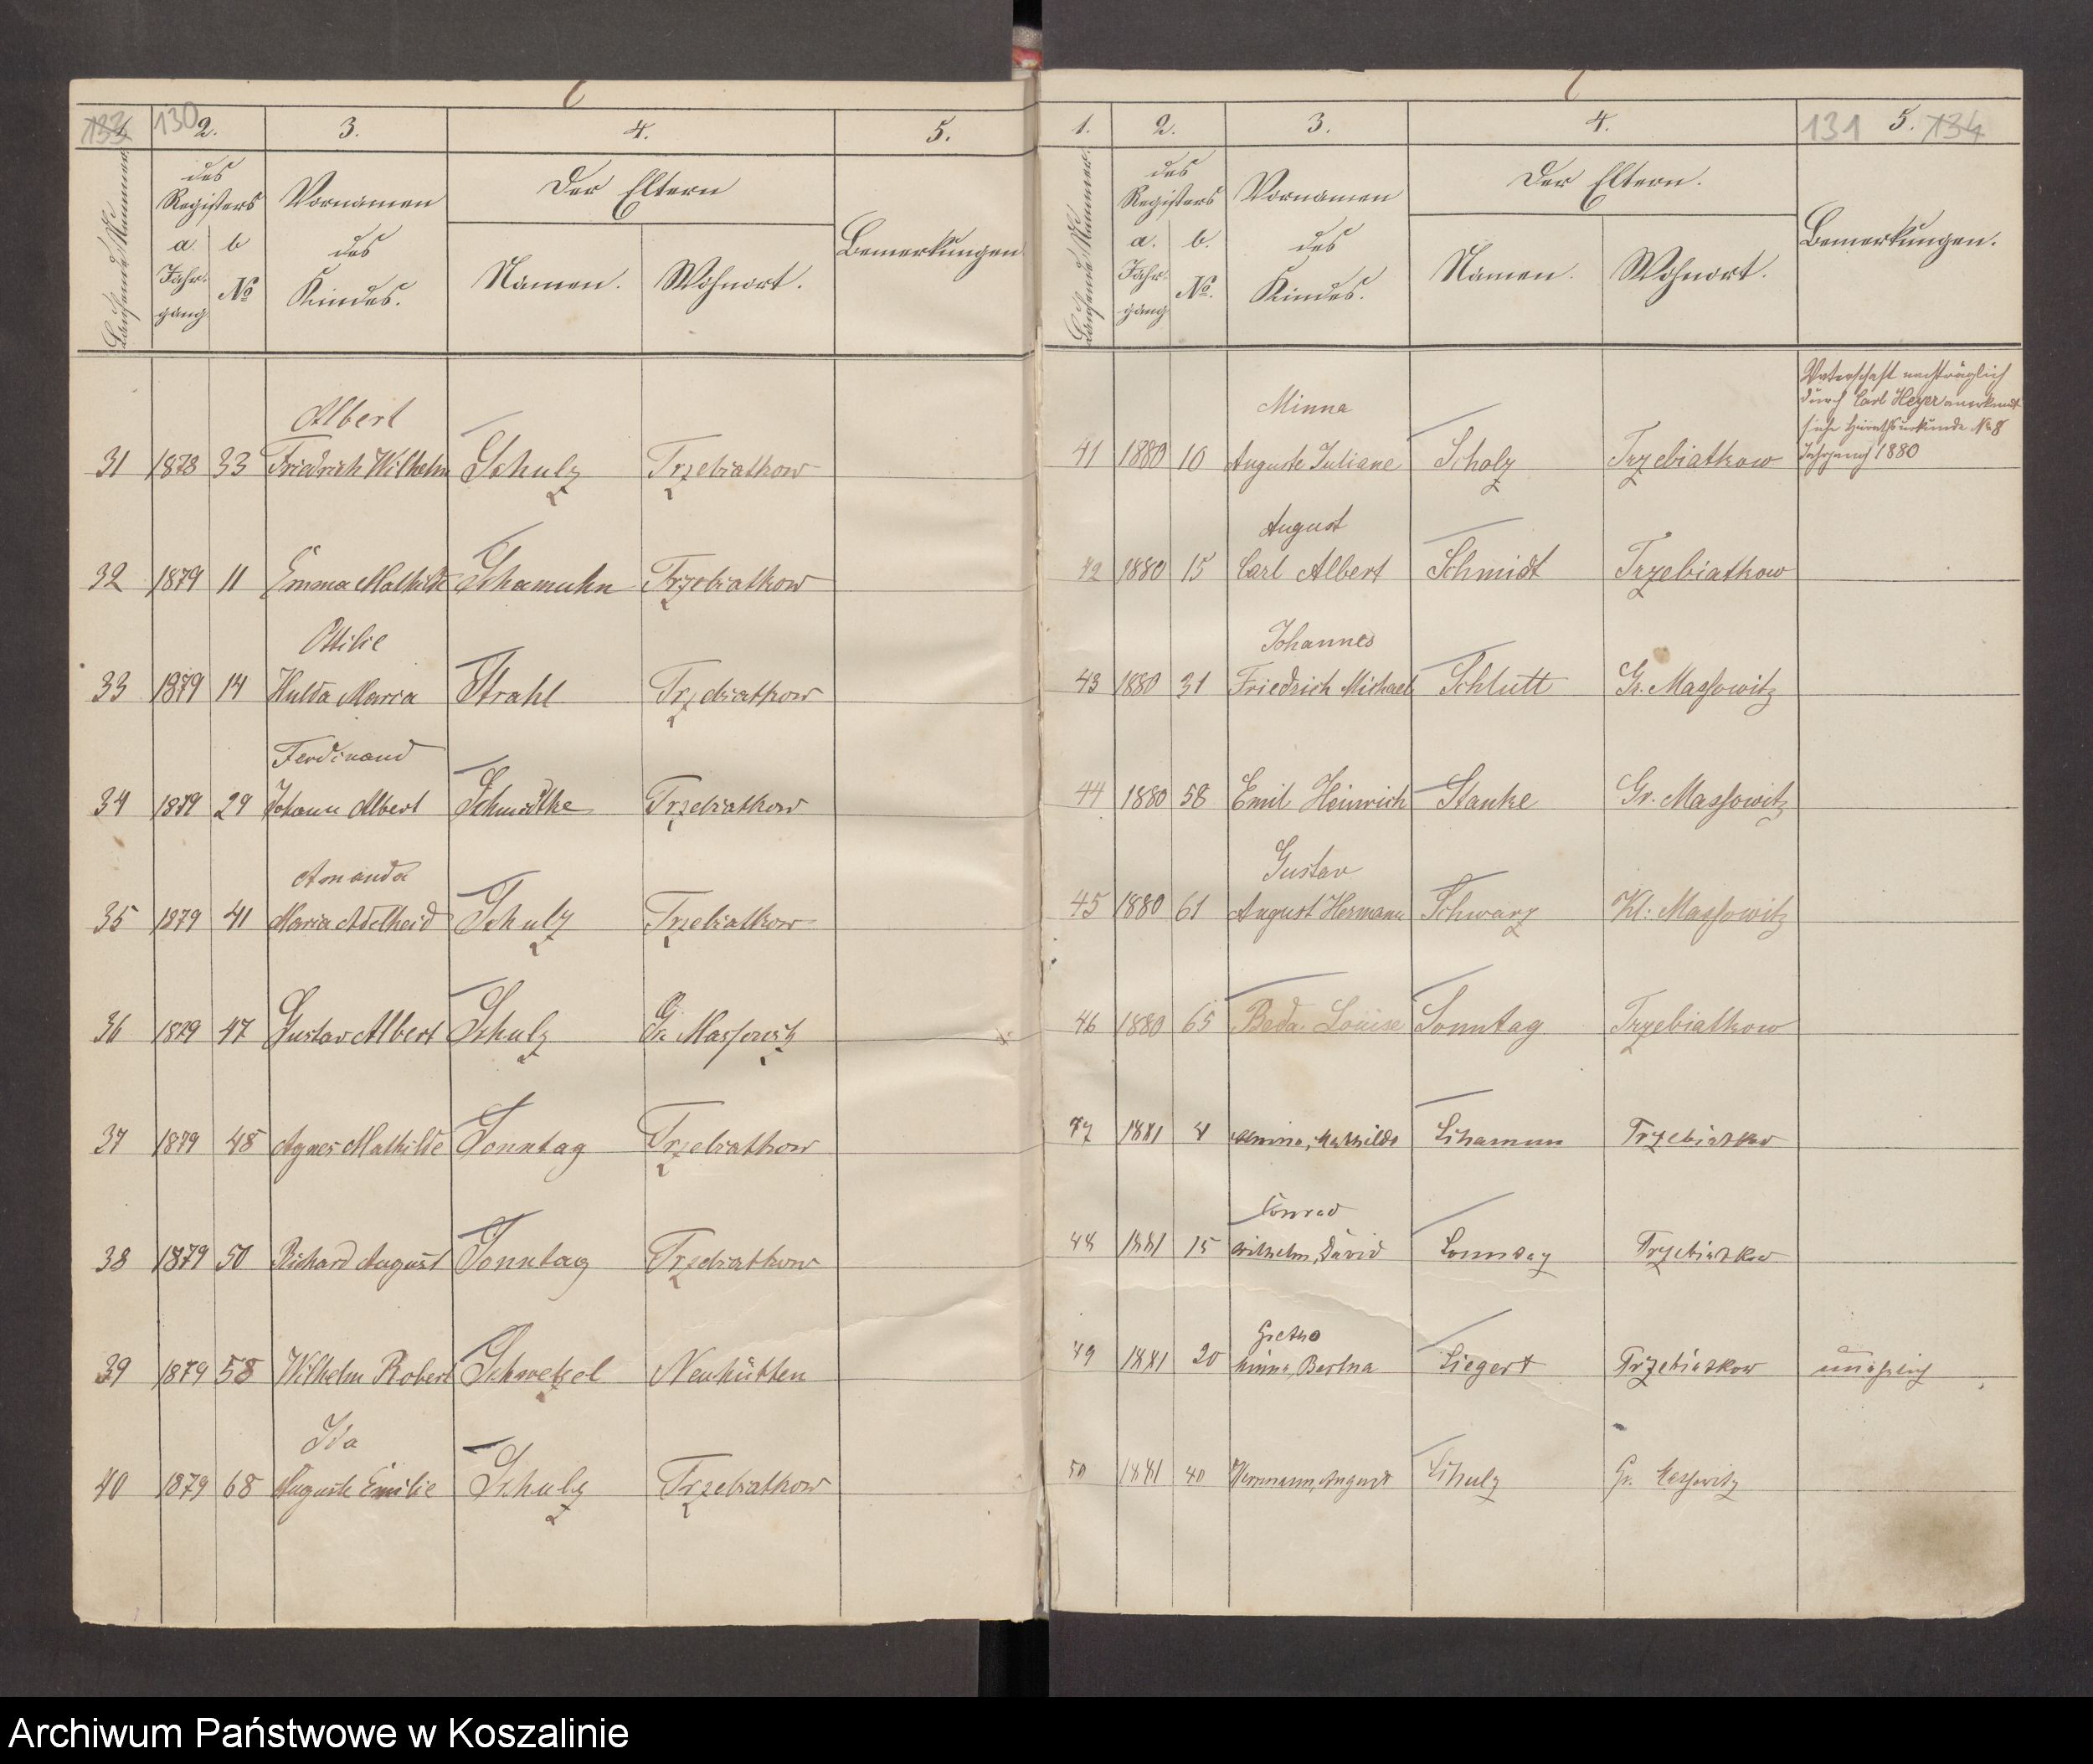 133 130 2. 3. 4. 5.
Laufende Nummer.
des Registers
Vornamen des Kindes.
Der Eltern
Bemerkungen
a. Jahrgang
b No
Namen.
Wohnort.
Albert
31 1878 33 Friedrich Wilhelm Schulz Trzebiatkow
32 1879 11 Emma Mathilde Schamuhn Trzebiatkow
Ottilie
33 1879 14 Hulda Maria Strahl Trzebiatkow
Ferdinand
34 1879 29 Johann Albert Schmidtke Trzebiatkow
Amanda
35 1879 41 Maria Adelheid Schulz Trzebiatkow
36 1879 47 Gustav Albert Schulz Gr. Massowitz
37 1879 48 Agnes Mathilde Sonntag Trzebiatkow
38 1879 50 Richard August Sonntag Trzebiatkow
39 1879 58 Wilhelm Robert Neuhütten
Ida
40 1879 68 Auguste Emilie Schulz Trzebiatkow
1. 2. 3. 4. 131 5. 134
Laufende Nummer.
des Registers
Vornamen des Kindes.
Der Eltern.
Bemerkungen.
a. Jahrgang
b. No.
Namen.
Wohnort.
Vaterschaft nachträglich
durch Carl Heyer anerkannt
siehe Heirathsurkunde No 8
Jahrgang 1880
Minna
41 1880 10 Auguste Juliane Scholz Trzebiatkow
August
42 1880 15 Carl Albert Schmidt Trzebiatkow
Johannes
43 1880 31 Friedrich Michael Schlutt Gr. Massowitz
44 1880 58 Emil Heinrich Stanke Gr. Massowitz
Gustav
45 1880 61 August Hermann Schwarz Kl: Massowitz
46 1880 65 Beda Louise Sonntag Trzebiatkow
47 1881 4 Mathilde Schamun Trzebiatkow
Conrad
48 1881 15 Wilhelm, David Sonntag Trzebiatkow
Grethe
49 1881 20 Minna, Bertha Siegert Trzebiatkow unehelich
50 1881 40 Hermann, August Schulz Gr. Massowitz
Archiwum Państwowe w Koszalinie